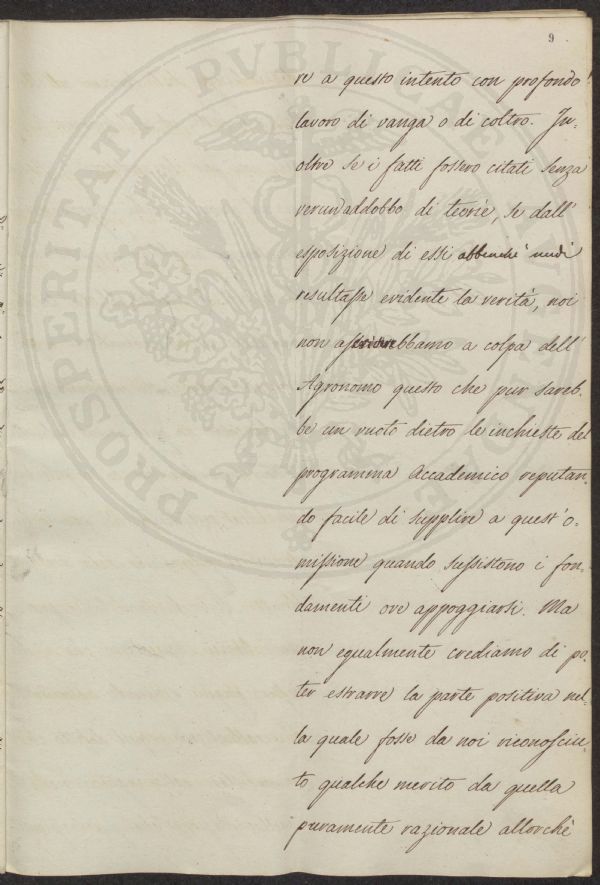 9
re a questo intento con profondo
lavoro di vanga o di coltro. In-
oltre se i fatti fossero citati senza
verun'addobbo di teorie, se dall'
esposizione di essi abbenchè nudi
resultasse evidente la verità, noi
non ascriverebbamo a colpa dell'
Agronomo questo che pur sareb-
be un vuoto dietro le inchieste del
programma Accademico reputan-
do facile di supplire a quest'o-
missione quando sussistono i fon-
damenti ove appoggiarsi. Ma
non egualmente crediamo di po-
ter estrarre la parte positiva nel-
la quale fosse da noi riconosciu-
to qualche merito da quella
puramente razionale allorchè
PROSPERITATI PVBLICAE AVGENDAE